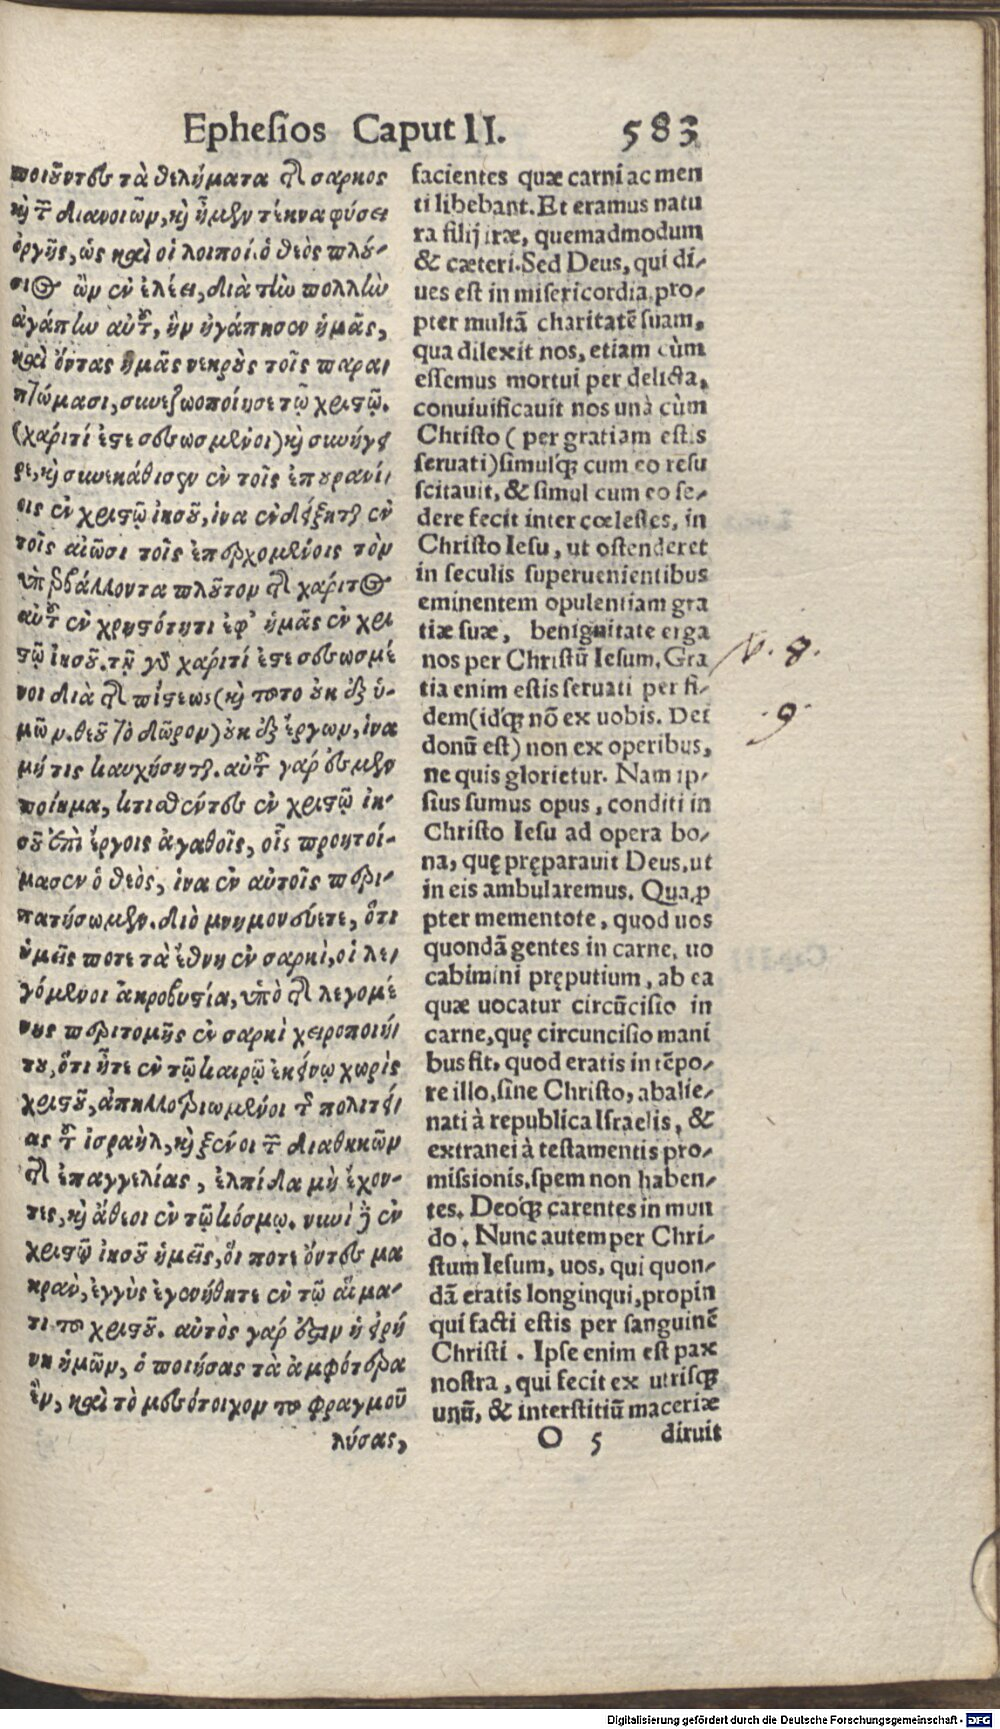 Ephesios Caput II. 583
ποιοῦντες τὰ θελήματα τῆς σαρκὸς
καὶ τῶν διανοιῶν, καὶ ἦμεν τέκνα φύσει
ὀργῆς, ὡς καὶ οἱ λοιποί. ὁ θεὸς πλού-
σιος ὢν ἐν ἐλέει, διὰ τὴν πολλὴν
ἀγάπην αὐτοῦ, ἣν ἠγάπησεν ἡμᾶς,
καὶ ὄντας ἡμᾶς νεκροὺς τοῖς παρα-
πτώμασι, συνεζωοποίησε τῷ χριστῷ.
(χάριτί ἐστε σεσωσμένοι) καὶ συνήγει-
ρε, καὶ συνεκάθισεν ἐν τοῖς ἐπουρανί-
οις ἐν χριστῷ ἰησοῦ, ἵνα ἐνδείξηται ἐν
τοῖς αἰῶσι τοῖς ἐπερχομένοις τὸν
ὑπερβάλλοντα πλοῦτον τῆς χάριτος
αὐτοῦ ἐν χρηστότητι ἐφ' ἡμᾶς ἐν χρι
στῷ ἰησοῦ. τῇ γὰρ χάριτί ἐστε σεσωσμέ
νοι διὰ τῆς πίστεως (καὶ τοῦτο οὐκ ἐξ ὑ-
μῶν. θεοῦ τὸ δῶρον) οὐκ ἐξ ἔργων, ἵνα
μή τις καυχήσηται. αὐτοῦ γάρ ἐσμεν
ποίημα, κτισθέντες ἐν χριστῷ ἰη-
σοῦ ἐπὶ ἔργοις ἀγαθοῖς, οἷς προητοί-
μασεν ὁ θεός, ἵνα ἐν αὐτοῖς περι-
πατήσωμεν. διὸ μνημονεύετε, ὅτι
ὑμεῖς ποτε τὰ ἔθνη ἐν σαρκὶ, οἱ λε-
γόμενοι ἀκροβυστία, ὑπὸ τῆς λεγομέ
νης περιτομῆς ἐν σαρκὶ χειροποιή-
του, ὅτι ἦτε ἐν τῷ καιρῷ ἐκείνῳ χωρὶς
χριστοῦ, ἀπηλλοτριωμένοι τῆς πολιτεί-
ας τοῦ ἰσραὴλ, καὶ ξένοι τῶν διαθηκῶν
τῆς ἐπαγγελίας, ἐλπίδα μὴ ἔχον-
τες, καὶ ἄθεοι ἐν τῷ κόσμῳ. νυνὶ δὲ ἐν
χριστῷ ἰησοῦ ὑμεῖς, οἵ ποτε ὄντες μα
κρὰν, ἐγγὺς ἐγενήθητε ἐν τῷ αἵμα-
τι τοῦ χριστοῦ. αὐτὸς γάρ ἐστιν ἡ εἰρή
νη ἡμῶν, ὁ ποιήσας τὰ ἀμφότερα
ἓν, καὶ τὸ μεσότοιχον τοῦ φραγμοῦ
λύσας,
facientes quæ carni ac men
ti libebant. Et eramus natu
ra filij iræ, quemadmodum
& cæteri. Sed Deus, qui di-
ues est in misericordia, pro-
pter multã charitatẽ suam,
qua dilexit nos, etiam cùm
essemus mortui per delicta,
conuiuificauit nos unà cùm
Christo (per gratiam estis
seruati) simulq́; cum eo resu
scitauit, & simul cum eo se-
dere fecit inter cœlestes, in
Christo Iesu, ut ostenderet
in seculis superuenientibus
eminentem opulentiam gra
tiæ suæ, benignitate erga
nos per Christũ Iesum. Gra
tia enim estis seruati per fi-
dem (idq́; nõ ex uobis. Dei
donũ est) non ex operibus,
ne quis glorietur. Nam ip-
sius sumus opus, conditi in
Christo Iesu ad opera bo-
na, quę pręparauit Deus, ut
in eis ambularemus. Qua ꝓ
pter mementote, quod uos
quondã gentes in carne, uo
cabimini pręputium, ab ea
quæ uocatur circũcisio in
carne, quę circuncisio mani
bus fit, quod eratis in tẽpo-
re illo, sine Christo, abalie-
nati à republica Israelis, &
extranei à testamentis pro-
missionis, spem non haben-
tes. Deoq́; carentes in mun
do. Nunc autem per Chri-
stum Iesum, uos, qui quon-
dã eratis longinqui, propin
qui facti estis per sanguinẽ
Christi. Ipse enim est pax
nostra, qui fecit ex utrisq́;
unũ, & interstitiũ maceriæ
O 5 diruit
V. 8.
9.
Digitalisierung gefördert durch die Deutsche Forschungsgemeinschaft - DFG